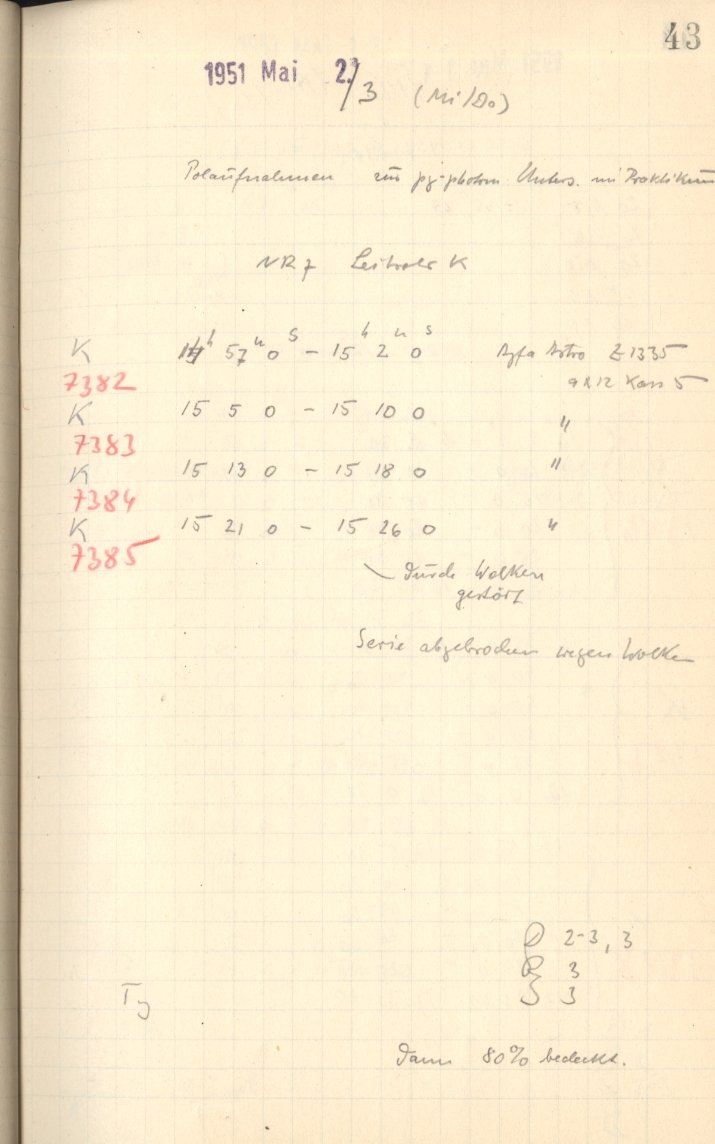 43
1951 Mai 2./3 (Mi/Do)
Polaufnahmen zum pg-photom Unters. im Praktikum
NR 7 K
K 14h 57m 0s – 15h 2m 0s Agfa Astro Z 1335
7382 9x12 Kass 5
K 15 5 0 – 15 10 0 "
7383
K 15 13 0 – 15 18 0 "
7384
K 15 21 0 – 15 26 0 "
7385
durch Wolken
gestört
Serie abgebrochen wegen Wolken
D 2-3, 3
R 3
S 3
Dann 80% bedeckt.